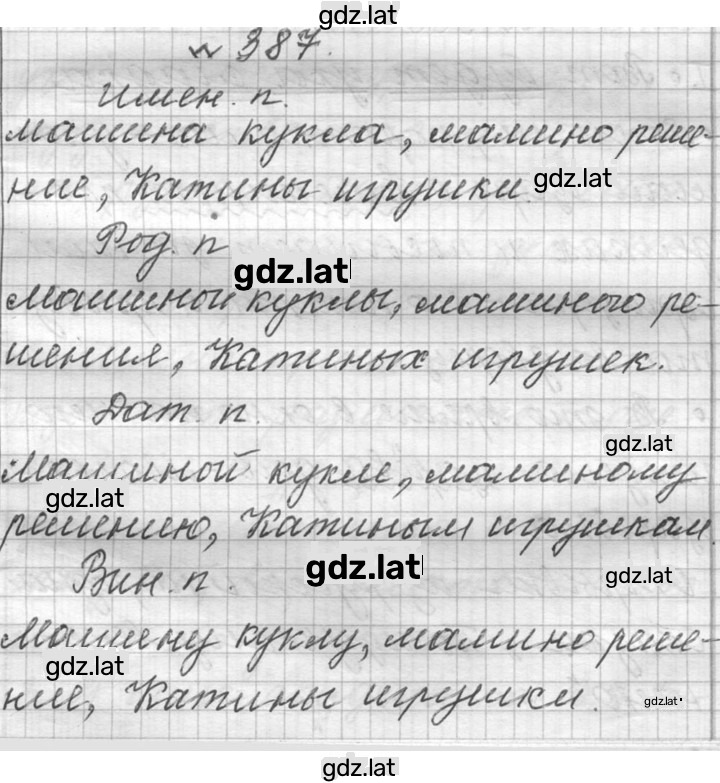 gdz.lat
№ 387.
Имен. п.
Машина кукла, мамино реше-
ние, Катины игрушки. gdz.lat
Род. п
gdz.lat
Машиной куклы, маминого ре-
шения, Катиных игрушек.
Дат. п.
gdz.lat
Машиной кукле, маминому
gdz.lat
решению, Катиным игрушкам.
gdz.lat
Вин. п.
gdz.lat
Машину куклу, мамино реше-
gdz.lat
ние, Катины игрушки.
gdz.lat
gdz.lat